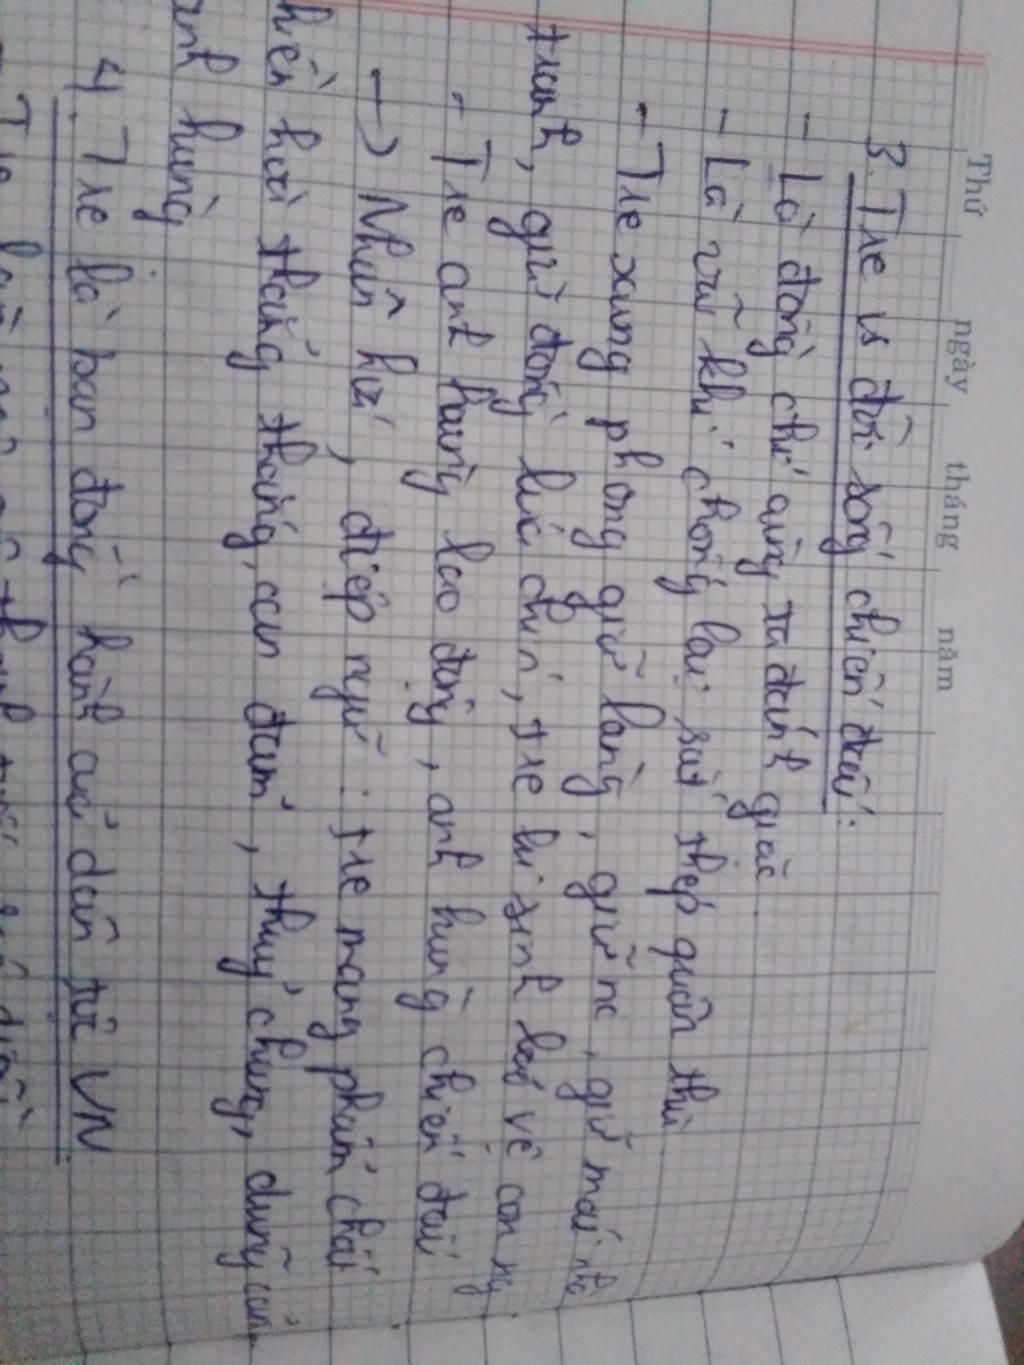 Thứ ngày tháng năm
3. Tre vs đời sống chiến đấu:
- Là đồng chí cùng ta đánh giặc
- Là vũ khí chống lại sắt thép quân thù
- Tre xung phong giữ làng, giữ nc, giữ mái nhà
tranh, giữ đồng lúa chín, tre hi sinh bảo vệ con ng
- Tre anh hùng lao động, anh hùng chiến đấu
→ Nhân hoá, điệp ngữ: tre mang phẩm chất
hiền hoà thẳng thắng, can đảm, thuỷ chung, dũng cảm
anh hùng
4. Tre là bạn đồng hành củ dân tộc VN